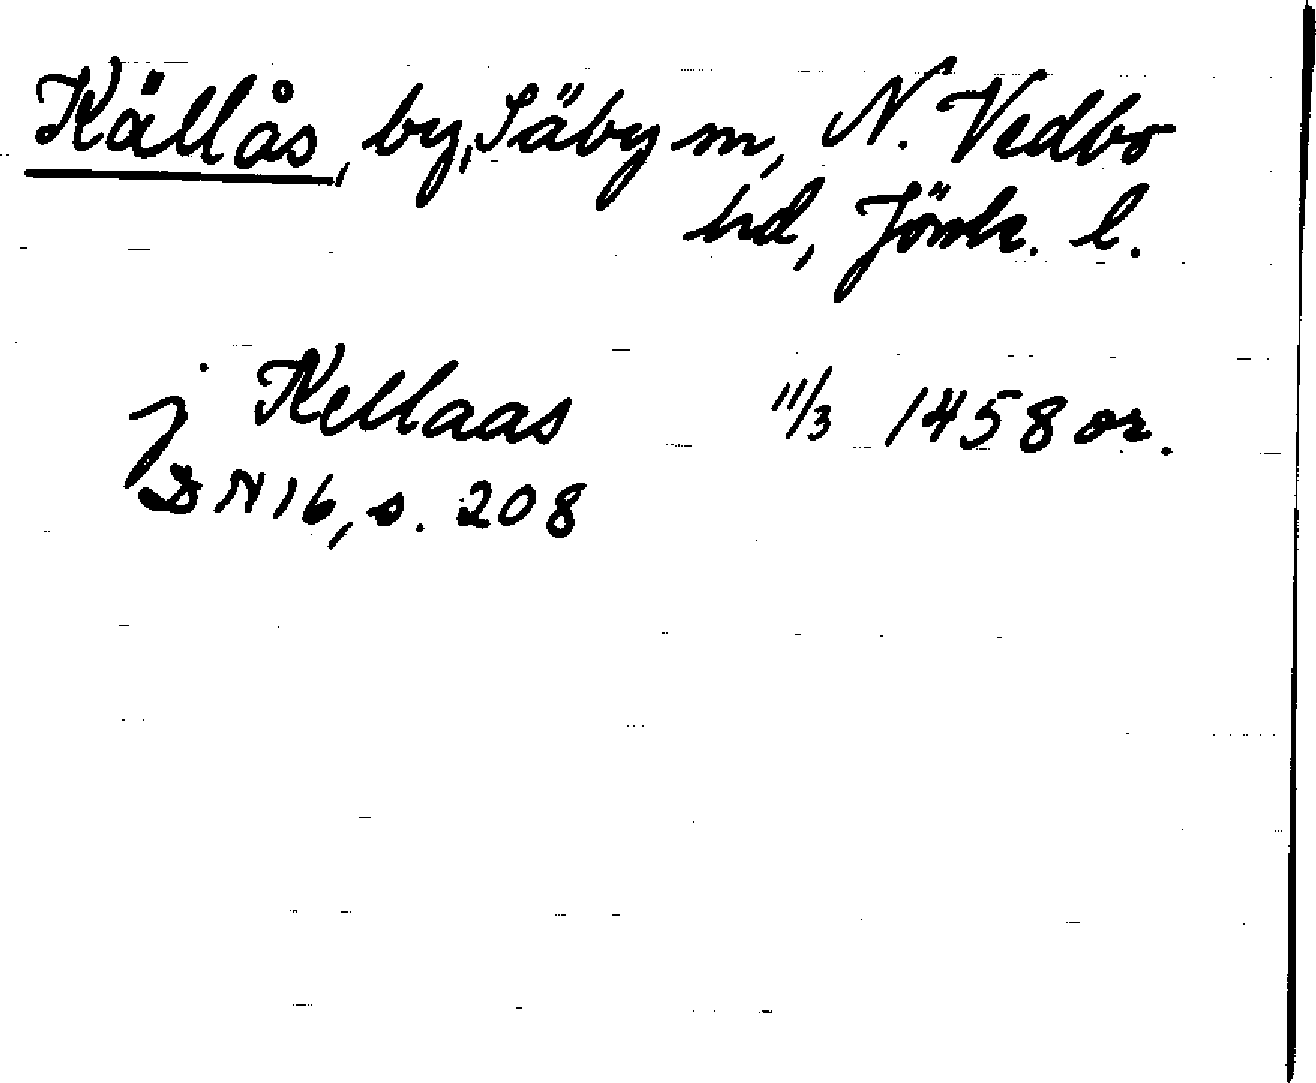 Källås, by, Säby sn, N. Vedbo
hd, Jönk. l.
j Kellaas 11/3 1458 or.
DN 16, s. 208